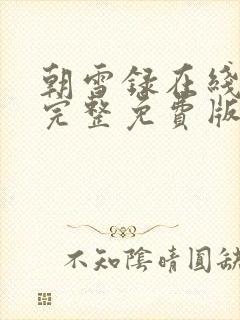 朝雪录在线
完整免費版
不知陰晴圓缺